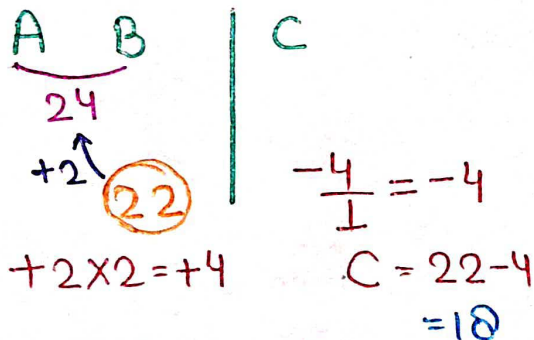 A B C
24
+2
22
-4/1 = -4
+2×2=+4
C = 22-4
=18